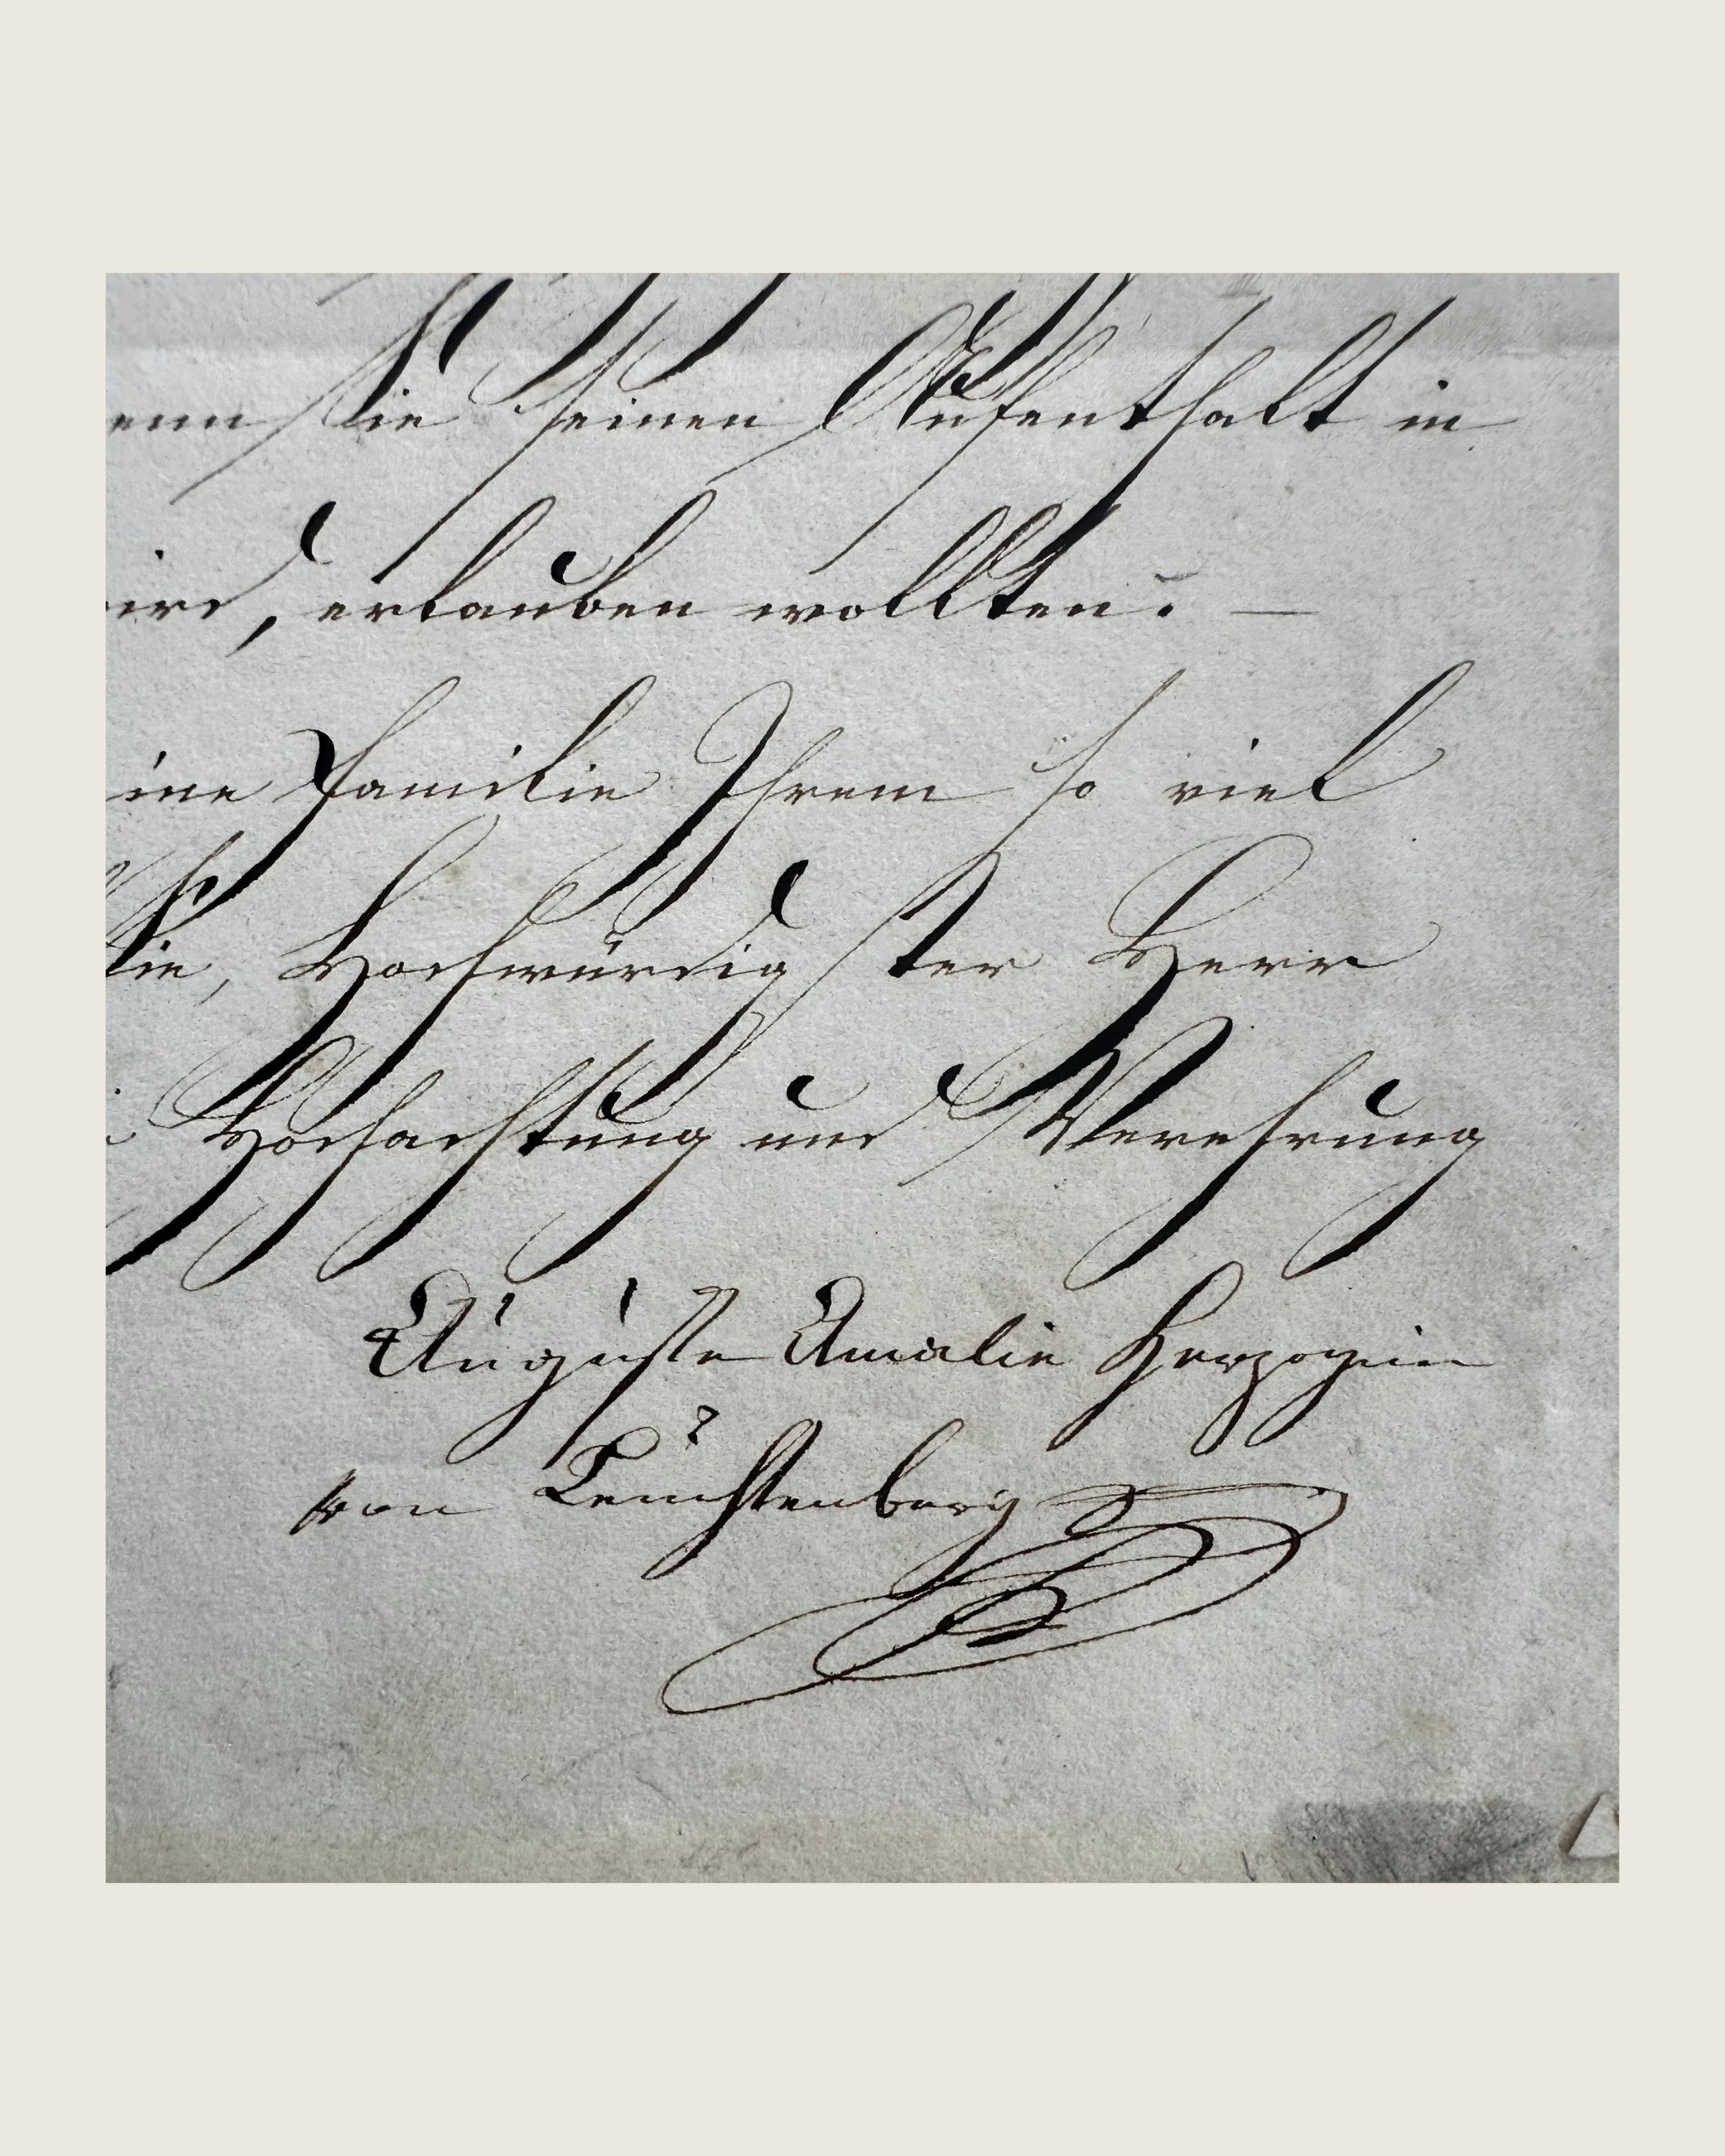 enn Sie seinen Aufenthalt in
ird, erlauben wollten. —
ine Familie Ihrem so viel
Sie, Hochwürdigster Herr
Hochachtung und Verehrung
Auguste Amalie Herzogin
von Leuchtenberg